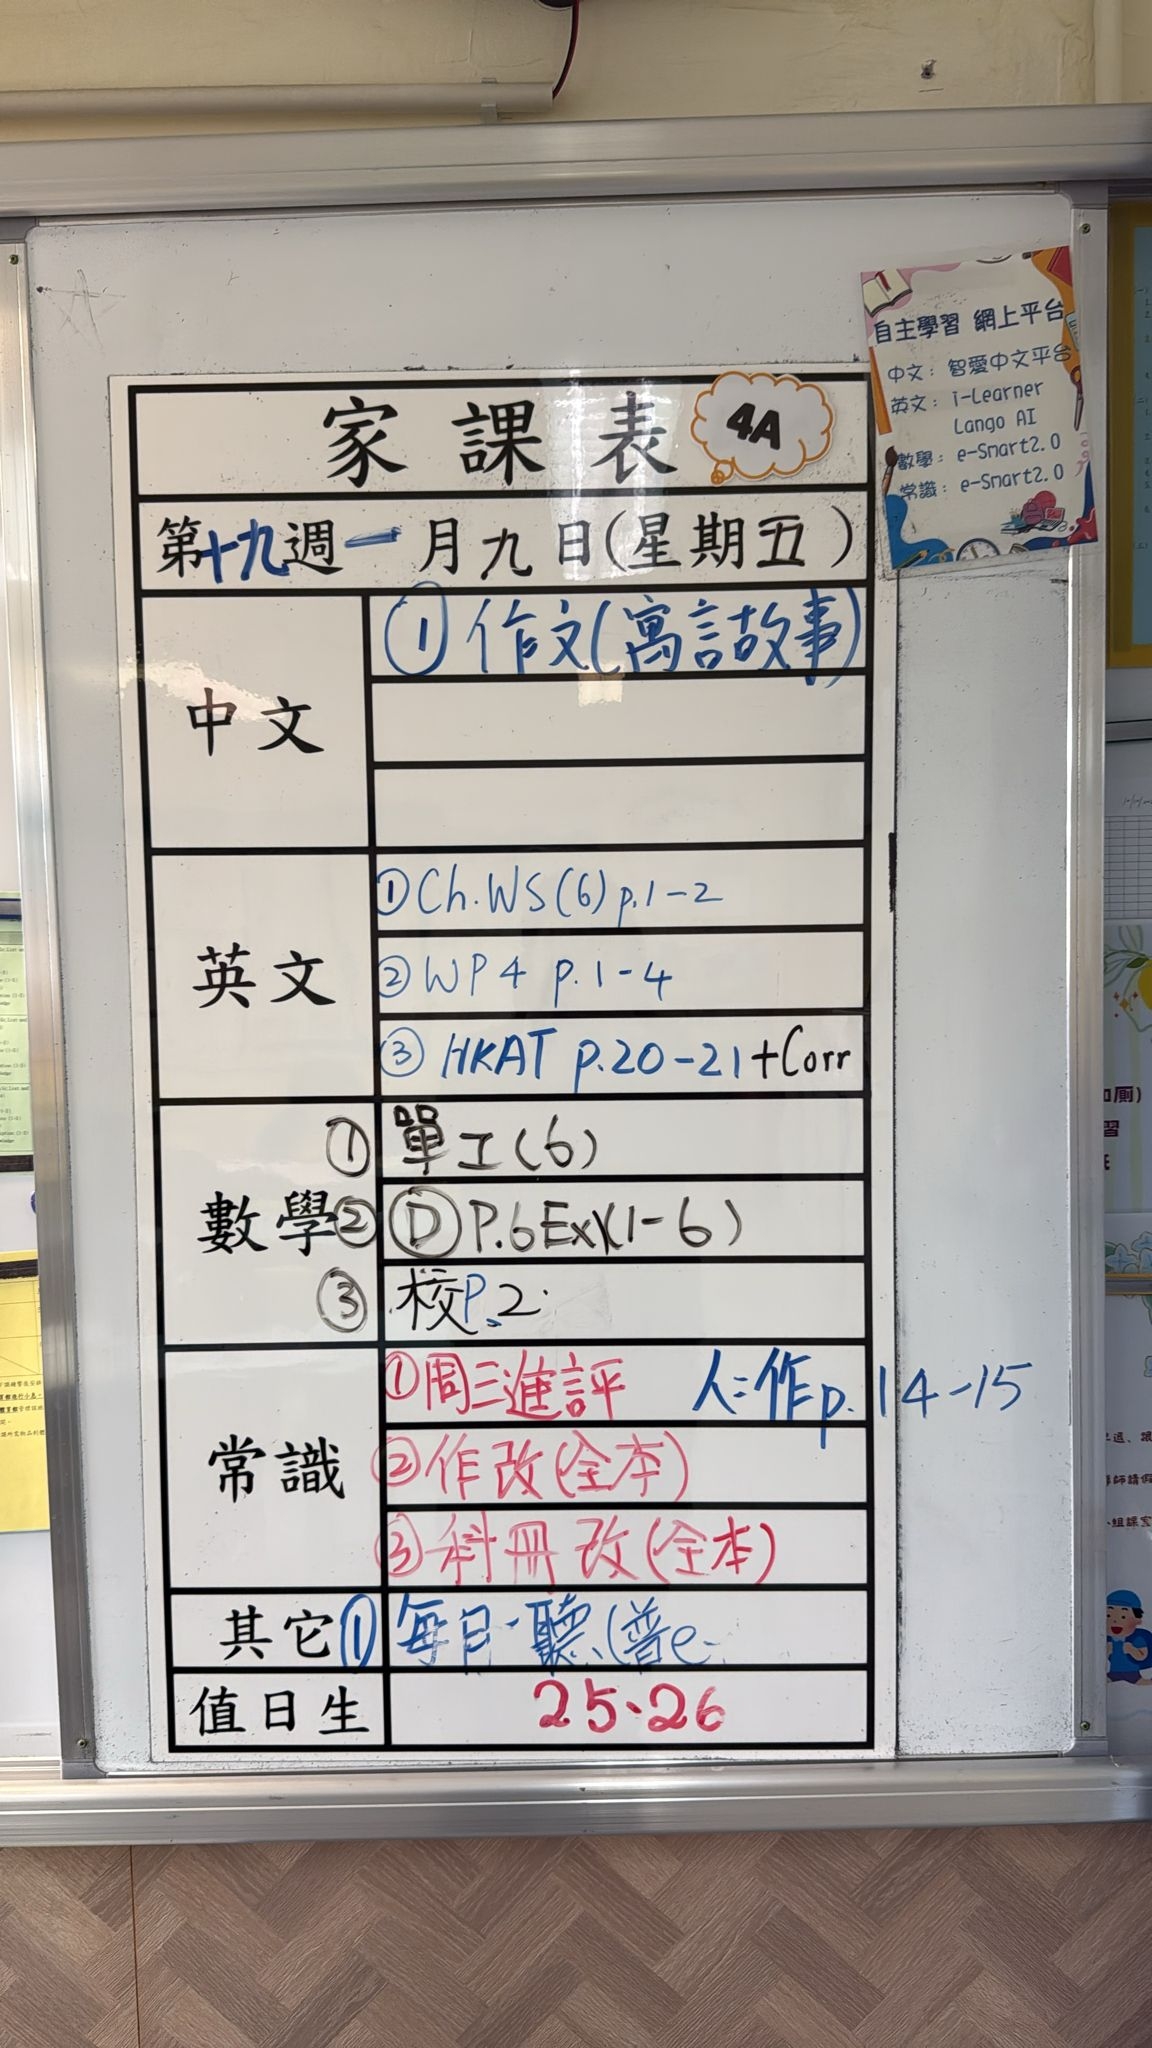 家課表 4A
第十九週一月九日(星期五)
中文
①作文(寓言故事)
英文
①Ch.WS(6) p.1-2
②WP4 p.1-4
③HKAT p.20-21+Corr
數學
①單工(6)
②Ⓓ P.6Ex(1-6)
③校P.2
常識
①周三進評 人:作p.14-15
②作改(全本)
③科冊改(全本)
其它
①每日一聽(普e
值日生
25、26
自主學習 網上平台
中文：智愛中文平台
英文：i-Learner
Lango AI
數學：e-Smart2.0
常識：e-Smart2.0